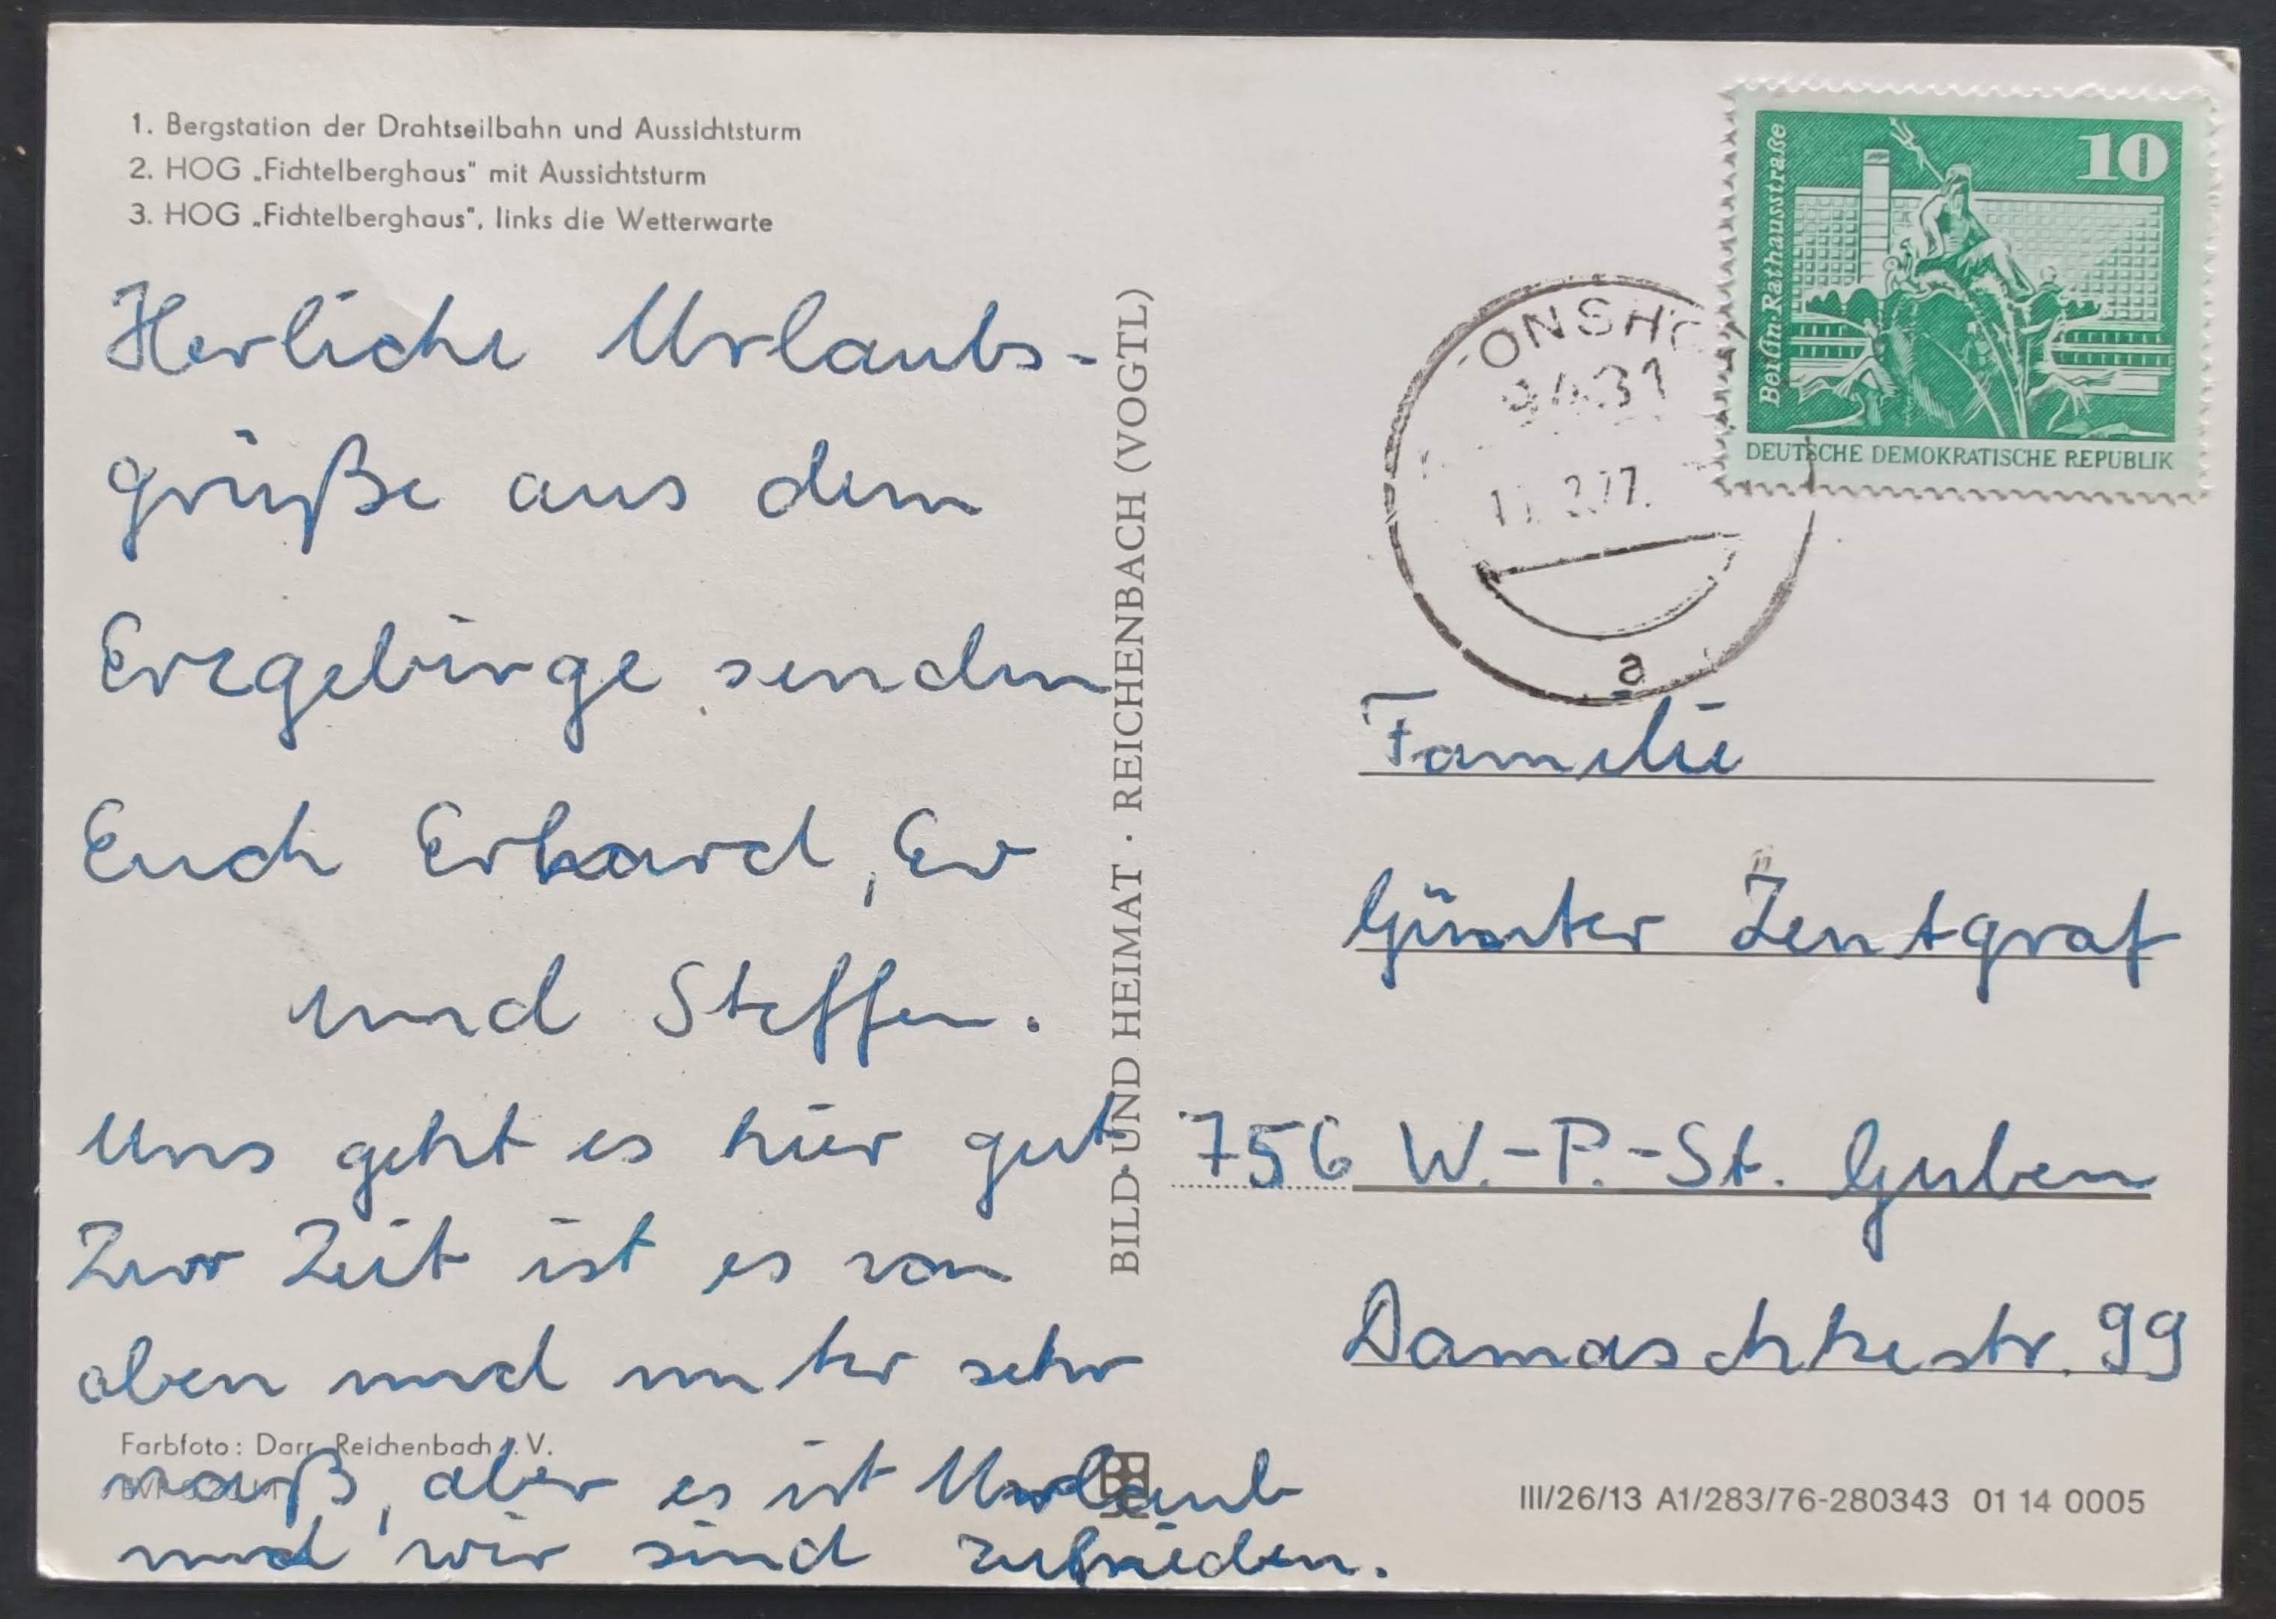 1. Bergstation der Drahtseilbahn und Aussichtsturm
2. HOG „Fichtelberghaus" mit Aussichtsturm
3. HOG „Fichtelberghaus", links die Wetterwarte
Herliche Urlaubs-
grüße aus dem
Erzgebirge senden
Euch Erhard, Ev
und Steffen.
Uns geht es hier gut
Zur Zeit ist es von
oben und unter sehr
naß, aber es ist Urlaub
und wir sind zufrieden.
Farbfoto: Darr, Reichenbach i. V.
BILD UND HEIMAT · REICHENBACH (VOGTL)
10
Berlin-Rathausstraße
DEUTSCHE DEMOKRATISCHE REPUBLIK
9431
a
Familie
Günter Zentgraf
756 W.-P.-St. Guben
Damaschkestr. 99
III/26/13 A1/283/76-280343 01 14 0005